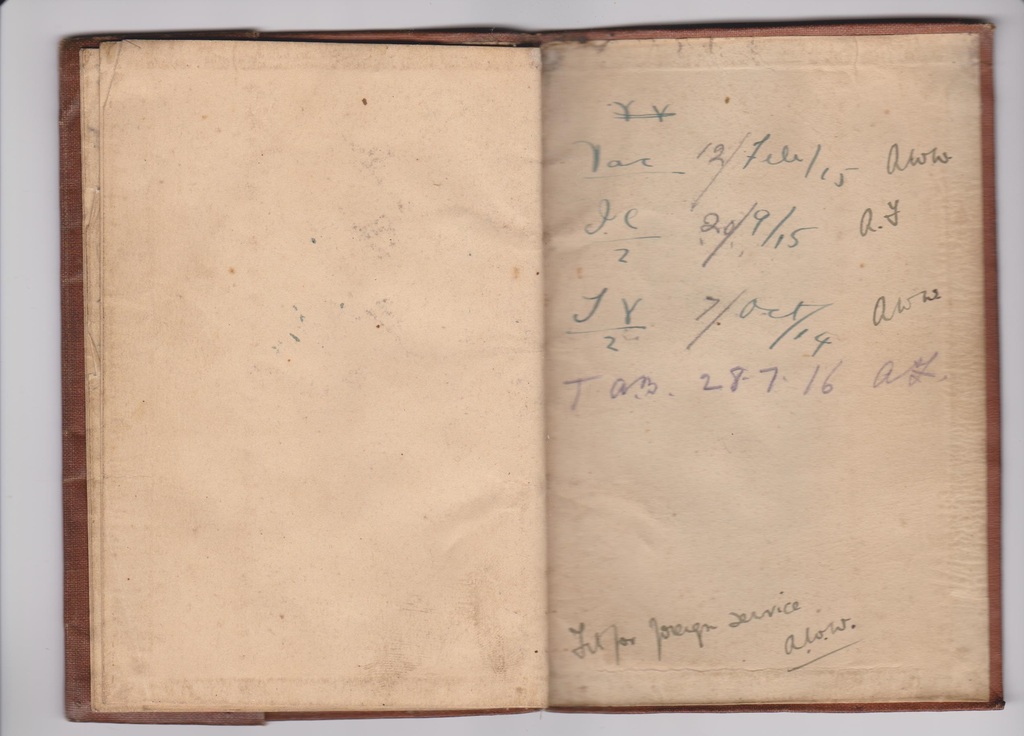 Vac 12/Feb/15 A.W.W.
I.C/2 29/9/15 A.F
T V/2 7/Oct/14 A.W.W.
T A.B. 28.7.16 A.F.
Fit for foreign service
A.W.W.